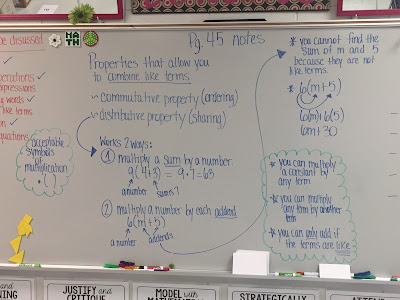 be discussed
MATH
Pg. 45 notes
Properties that allow you
to combine like terms
commutative property (ordering)
distributive property (sharing)
expressions
words
like terms
equations
acceptable
symbols
of
multiplication
• ( )
Works 2 ways:
① multiply a sum by a number
9(4+3) = 9·7=63
a number
sum=7
② multiply a number by each addend
6(m+5)
a number
addends
* you cannot find the
sum of m and 5
because they are not
like terms.
* 6(m+5)
6(m)+6(5)
6m+30
* you can multiply
a constant by
any term
* you can multiply
any term by another
term
* you can only add if
the terms are like
and
ning
JUSTIFY and
CRITIQUE
MODEL with
MATHEMATICS
STRATEGICALLY
ATTEND